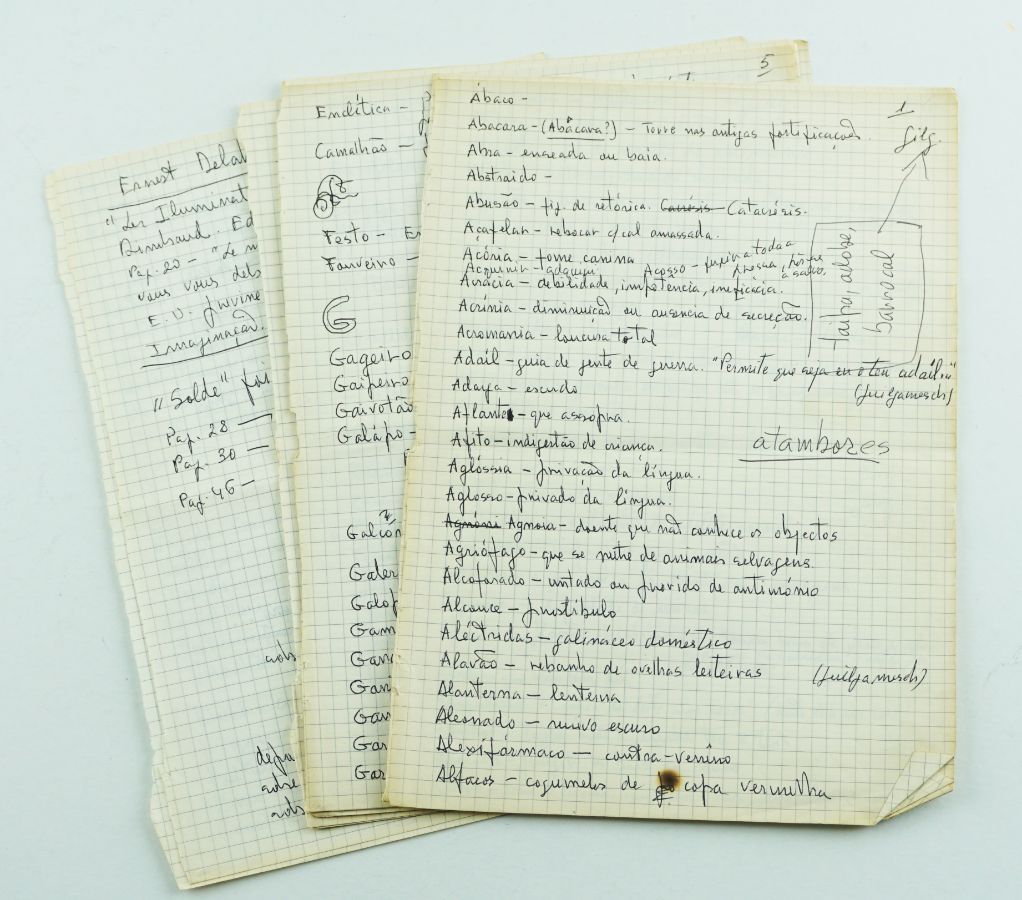 Ernest Delah
"Les Iluminat
Rimbaud. Ed
Pag. 20 - "Le m
vous vous dels
E. V. Irvine
Imaginação.
"Solde"
Pag. 28 —
Pag. 30 —
Pag. 46 —
5
Enclítica -
Camalhão -
Festo - Es
Fouveiro -
G
Gageiro
Gaipeiro
Gaivotão
Galápo -
Galer
Galop
Gam
Gan
Gan
Gar
Gar
1
Gilg.
Ábaco -
Abacara - (Abácara?) - Torre nas antigas fortificações.
Abra - enseada ou baia.
Abstraido -
Abusão - fig. de retórica. Catacrésis.
Açafelar - rebocar c/cal amassada.
Acória - fome canina
Acquirir - adquirir
Acrácia - debilidade, impotência, ineficácia.
Acrínia - diminuição ou ausencia de secreção.
Acromania - loucura total
Adaíl - guia de gente de guerra. "Permite que seja eu o teu adaíl..."
(Guilgamesch)
Adaga - escudo
Aflante - que assopra.
Afito - indigestão de criança.
atambores
Aglóssia - privação da língua.
Aglosso - privado da língua.
Agnosia - doente que não conhece os objectos
Agriófago - que se nutre de animais selvagens.
Alcoforado - untado ou provido de antimónio
Alcouce - prostíbulo
Aléctridas - galináceo doméstico
Alavão - rebanho de ovelhas leiteiras (Guilgamesch)
Alanterna - lenterna
Aleonado - ruivo escuro
Alexifármaco — contra-veneno
Alfacos - cogumelos de copa vermelha
taipa, adobe,
barrocal